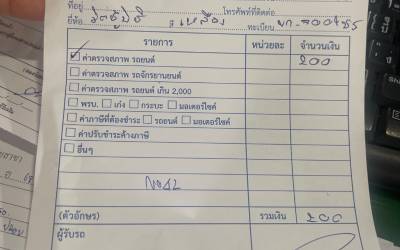 ที่อยู่ โทรศัพท์ที่ติดต่อ
ยี่ห้อ สี เหลือง ทะเบียน
รายการ หน่วยละ จำนวนเงิน
ค่าตรวจสภาพ รถยนต์ 200
ค่าตรวจสภาพ รถจักรยานยนต์
ค่าตรวจสภาพ รถยนต์ เกิน 2,000
พรบ. เก๋ง กระบะ มอเตอร์ไซค์
ค่าภาษีที่ต้องชำระ รถยนต์ มอเตอร์ไซค์
ค่าปรับชำระค้างภาษี
อื่นๆ
(ตัวอักษร) รวมเงิน 200
ผู้รับรถ